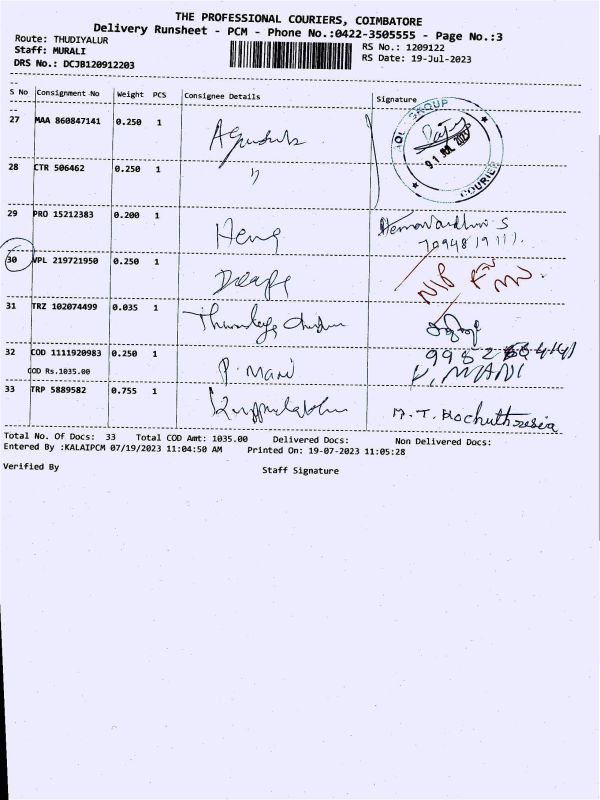 THE PROFESSIONAL COURIERS, COIMBATORE
Delivery Runsheet - PCM - Phone No.:0422-3505555 - Page No.:3
Route: THUDIYALUR
RS No.: 1209122
Staff: MURALI
RS Date: 19-Jul-2023
DRS No.: DCJB120912203
S No Consignment No Weight PCS Consignee Details Signature
27 MAA 860847141 0.250 1
GROUP
COURIER
28 CTR 506462 0.250 1 "
29 PRO 15212383 0.200 1
30 VPL 219721950 0.250 1
31 TRZ 102074499 0.035 1
32 COD 1111920983 0.250 1 P. Mani P. MANI
COD Rs.1035.00
33 TRP 5889582 0.755 1
Total No. Of Docs: 33 Total COD Amt: 1035.00 Delivered Docs: Non Delivered Docs:
Entered By :KALAIPCM 07/19/2023 11:04:50 AM Printed On: 19-07-2023 11:05:28
Verified By Staff Signature